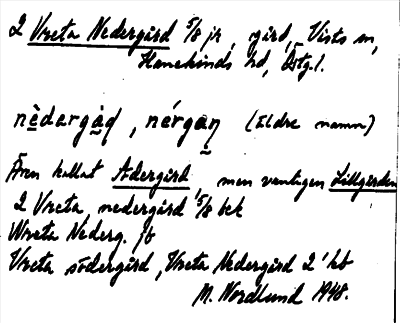 2 Vreta Nedergård 5/8 jr, gård, Vists sn,
Hanekinds hd, Östg. l.
nèdərgàḍ, nérgaṇ (äldre namn)
Även kallat Adergård, men vanligen Lillgården
2 Vreta nedergård 5/8 bek
Wreta Nederg. Jb
Vreta södergård, Vreta Nedergård 2' kb
M. Nordlund 1948.